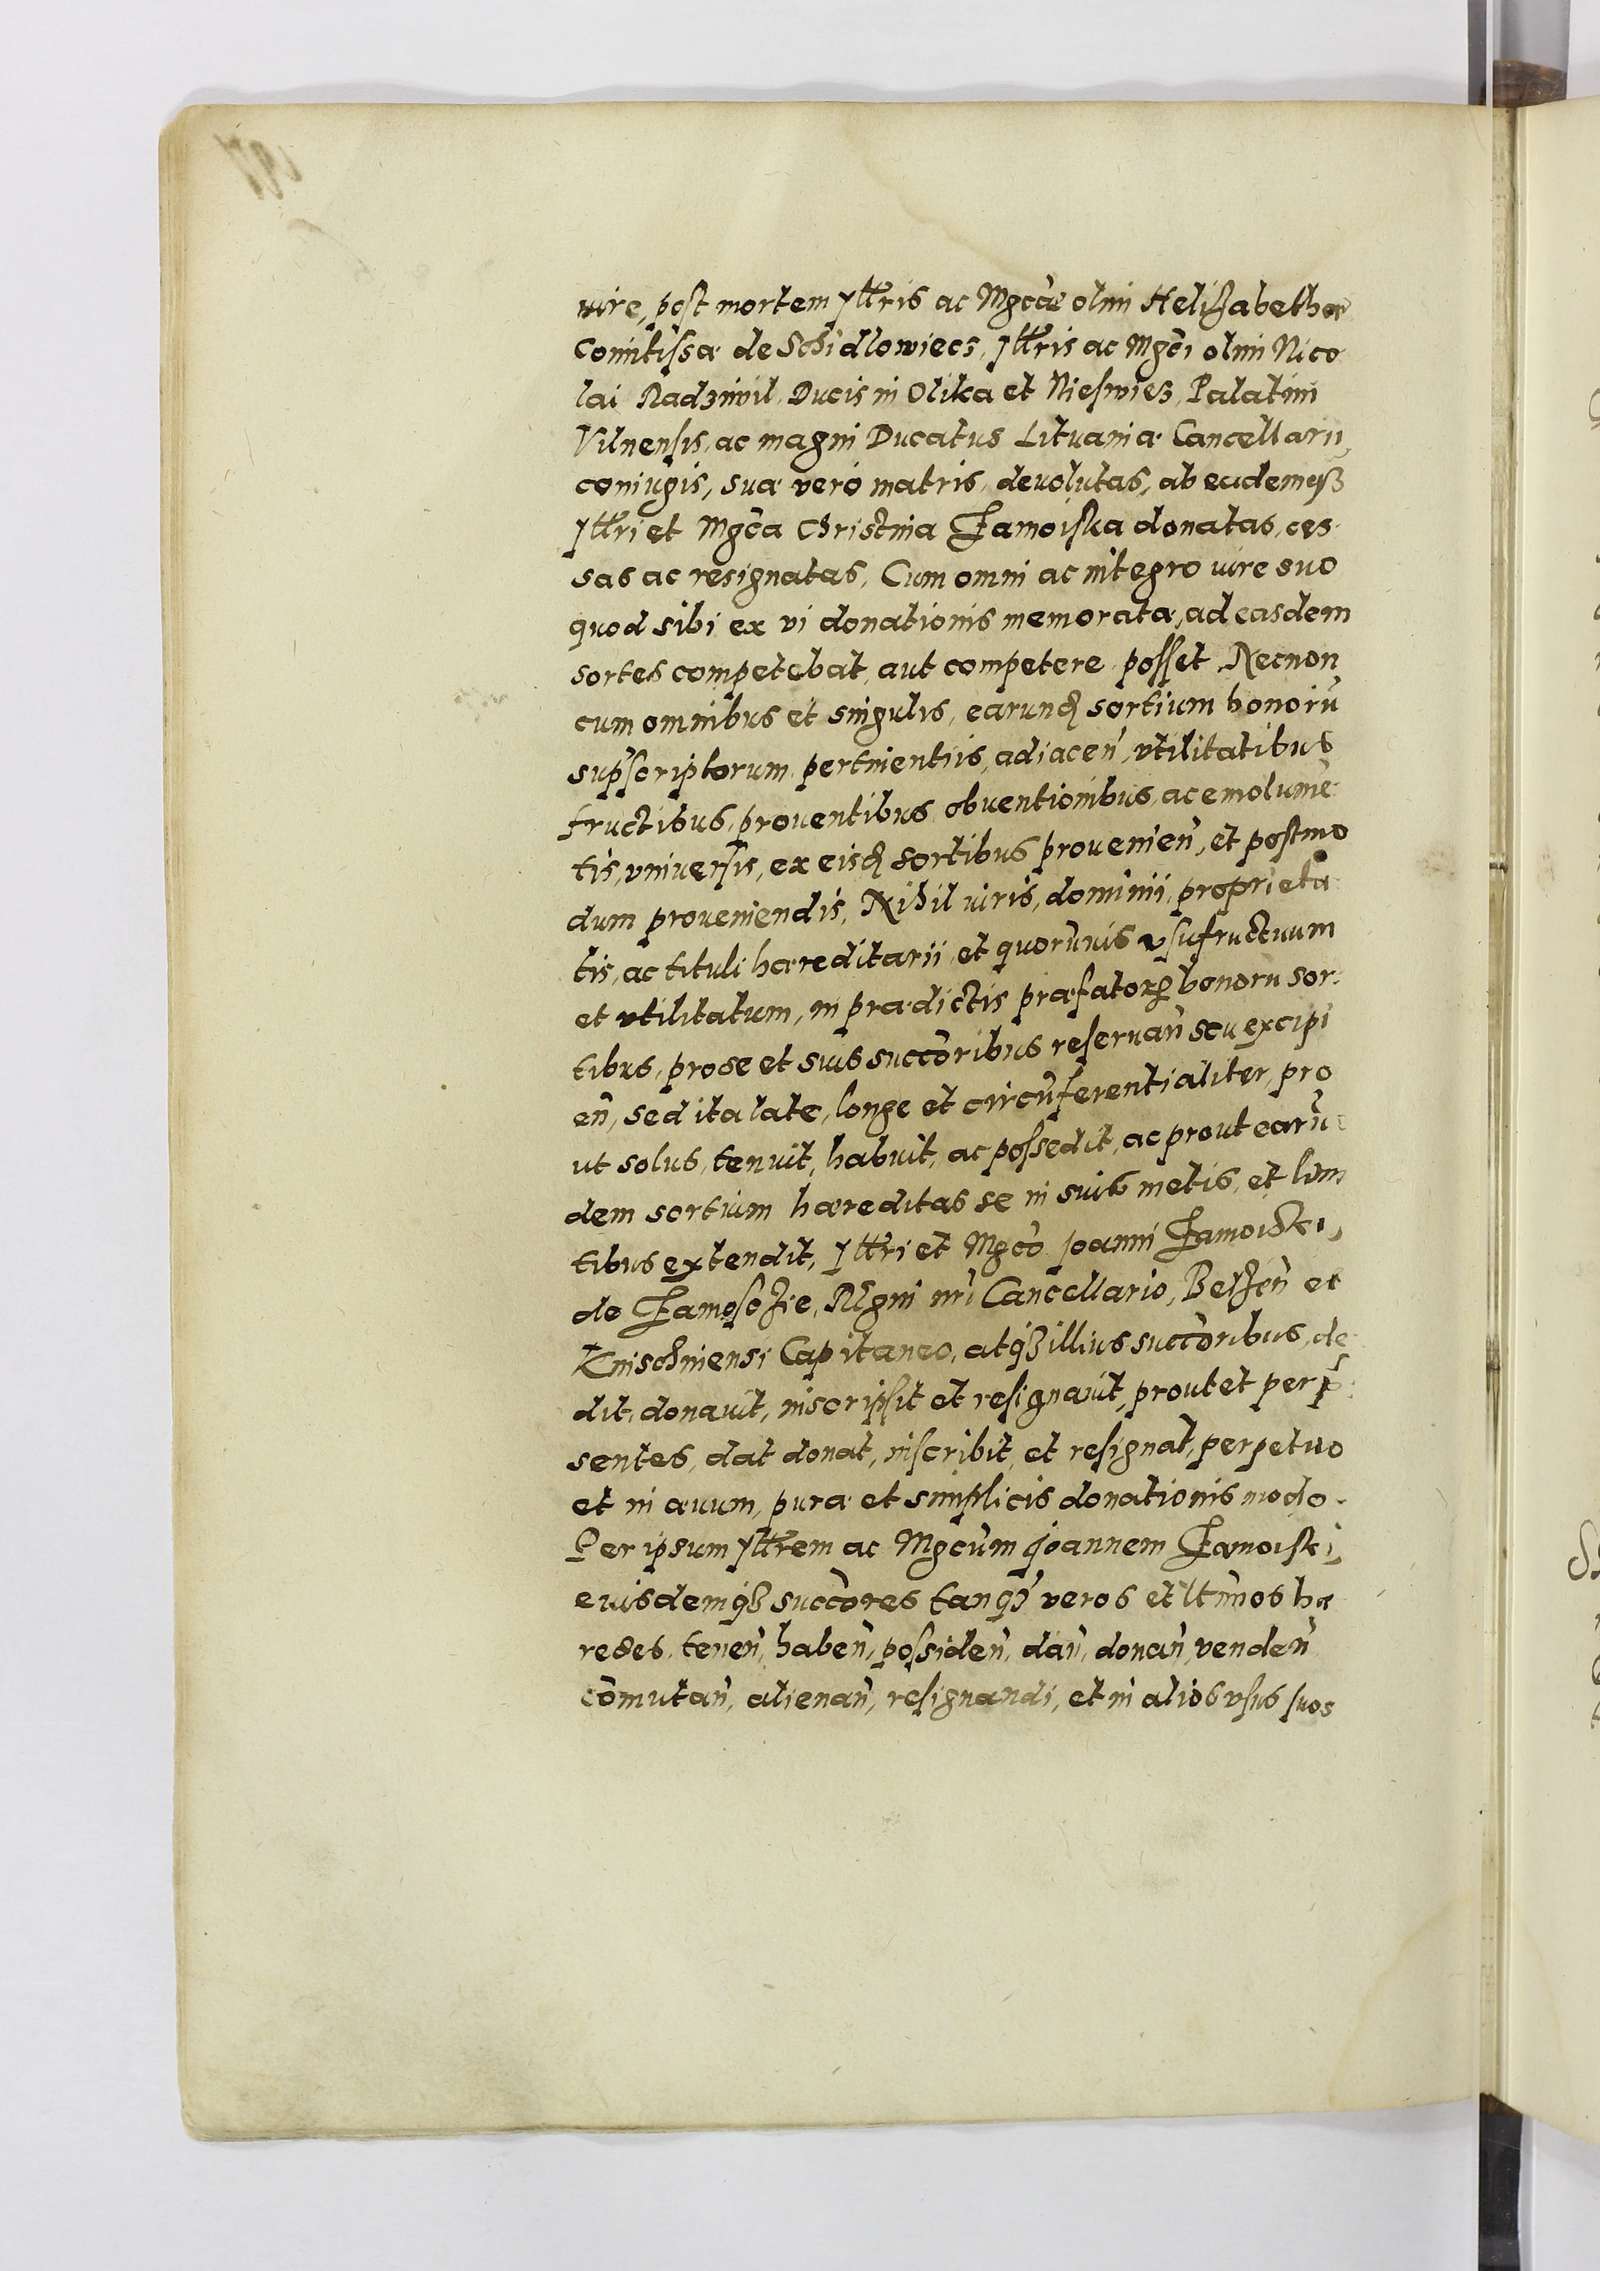 iure, post mortem Jllris ac Mgcæ olim Helizabethæ
Comitissæ de Schidlowiecz, Jllris ac Mgci olim Nico
lai Radziwil Ducis in Olika et Nieswiez Palatini
Vilnensis, ac magni Ducatus Lituaniæ Cancellarii,
coniugis, suæ vero matris, deuolutas, ab eademqꝫ
Jllri et Mgca Christina Zamoiska donatas, ces
sas ac resignatas, Cum omni ac integro iure suo
quod sibi ex vi donationis memoratæ, ad easdem
sortes competebat, aut competere posset. Necnon
cum omnibus et singulis, earund sortium bonorū
supscriptorum pertinentiis, adiacen̄, vtilitatibus
fructibus, prouentibus obuentionibus, ac emolumē
tis, vniuersis, ex eisd sortibus prouenien̄, et postmo
dum proueniendis, Nihil iuris, dominii, proprieta
tis, ac tituli hæreditarii, et quorumuis vsufructuum
et vtilitatum, in prædictis præfatorꝝ bonorū sor
tibus, pro se et suis succoribus reseruan̄ seu excipi
en̄, sed ita late, longe et circūferentialiter, pro
ut solus, tenuit, habuit, ac possedit, ac prout earū
dem sortium hæreditas se in suis metis, et limi
tibus extendit, Jllri et Mgco Joanni Zamoiski,
de Zamosczie, Regni nri Cancellario, Belzen̄ et
Knischinensi Capitaneo, atqꝫ illius succoribus, de
dit, donauit, inscripsit et resignauit, prout et per p̄
sentes, dat donat, inscribit, et resignat, perpetuo
et in æuum, puræ et simplicis donationis modo.
Per ipsum Jllrem ac Mgcum Joannem Zamoiski,
eiusdemqꝫ succores tanq̄ veros et ltimos hæ
redes, tenen̄, haben̄, possiden̄, dan̄, donan̄, venden̄
com̄utan̄, alienan̄, resignandi, et in alios vsus suos